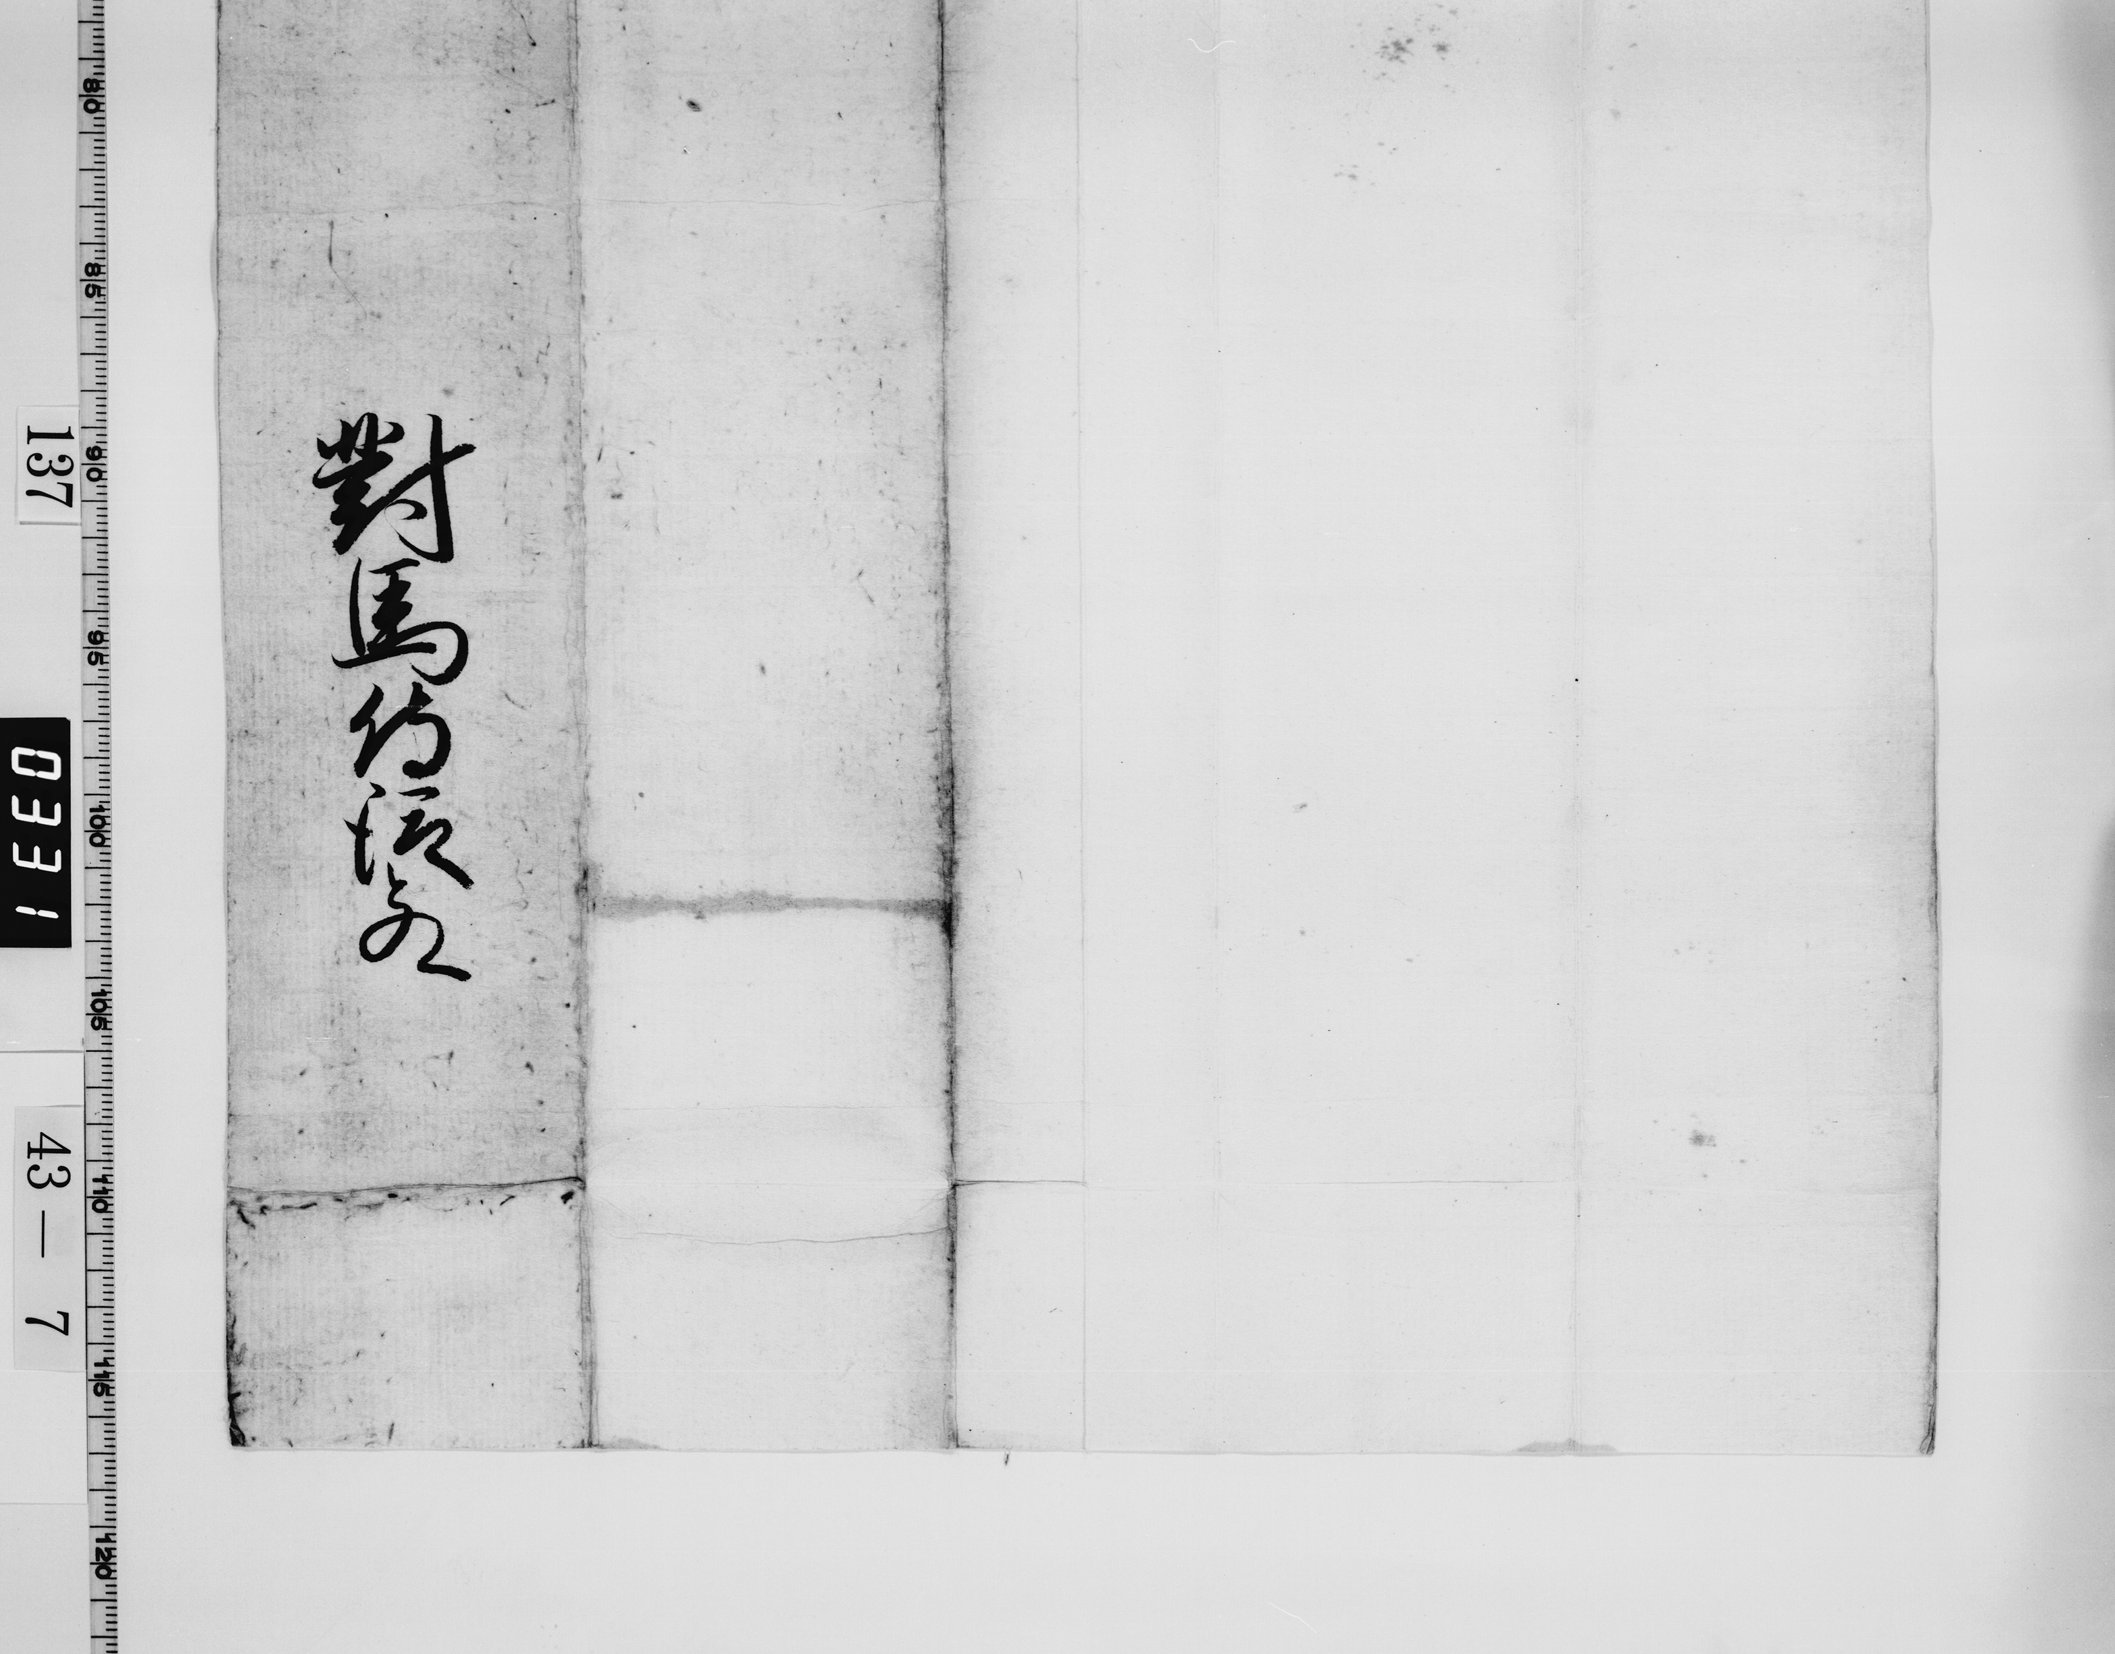 對馬侍從殿
137
0331
43 — 7
80
85
90
95
100
105
110
115
120